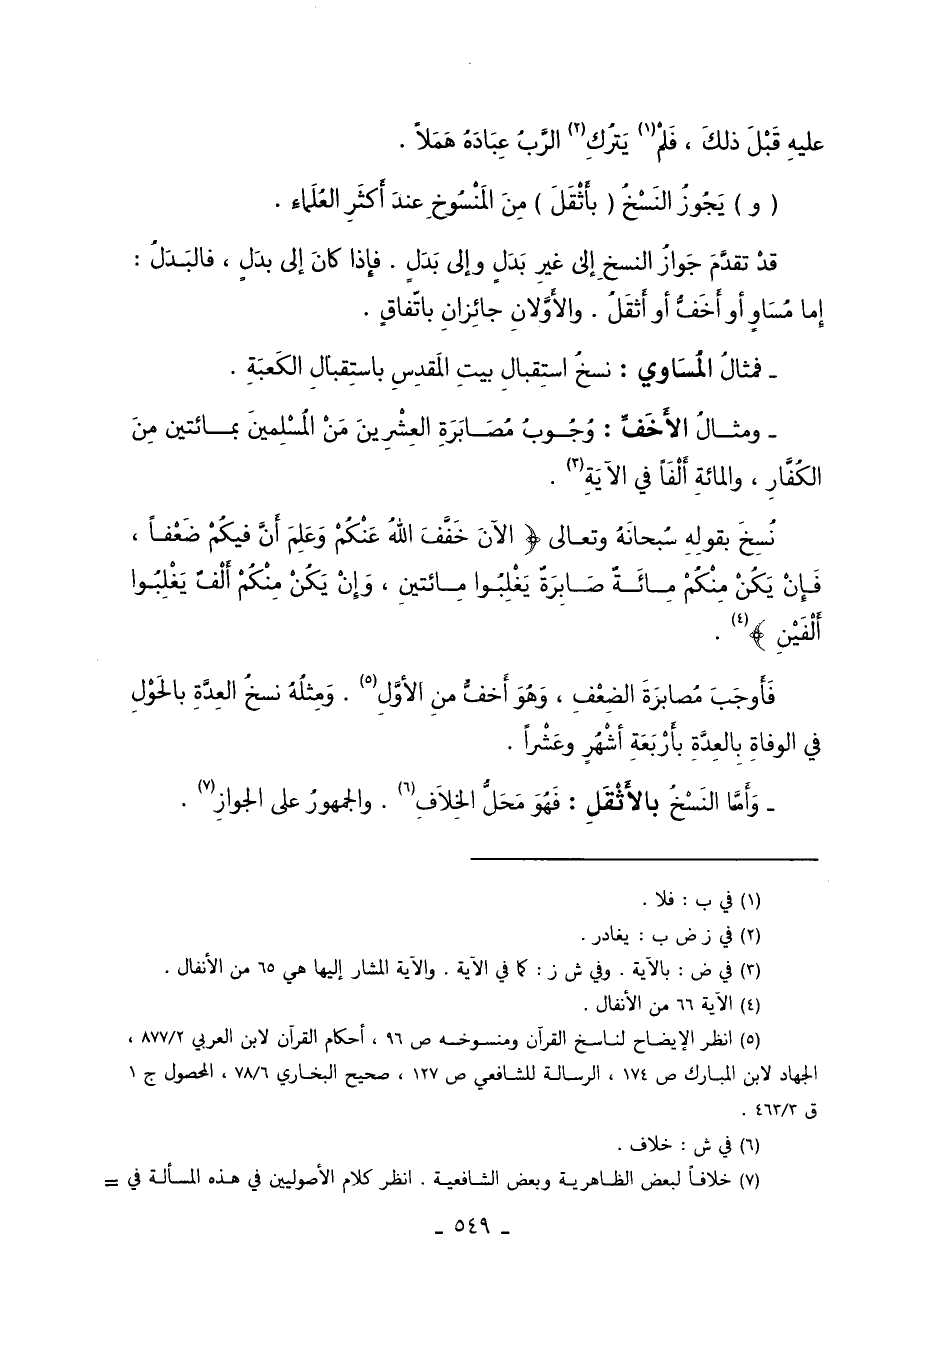 عليهِ قَبْلَ ذلكَ ، فَلَمْ(١) يَتْرُكِ(٢) الرَّبُ عِبَادَهُ هَمَلاً .
( و ) يَجُوزُ النَسْخُ ( بأَثْقَلَ ) مِنَ المَنْسُوخِ عندَ أَكثَرِ العُلَمَاء .
قدْ تقدَّمَ جَوازُ النسخِ إلى غيرِ بَدَلٍ وإلى بَدَلٍ . فإذا كانَ إلى بدَلٍ ، فالبَدَلُ :
إما مُسَاوٍ أو أَخَفُّ أو أثقَلُ . والأَوَّلانِ جائِزانِ باتّفاقٍ .
ـ فمثالُ المُسَاوي : نسخُ استقبالِ بيتِ المَقدسِ باستِقبالِ الكَعبَةِ .
ـ ومثالُ الأَخَفِّ : وُجُوبُ مُصَابَرَةِ العشْرِينَ مَنْ المُسْلمِينَ بمائتين مِنَ
الكُفَّارِ ، والمائةِ أَلْفَاً في الآيَةِ(٣) .
نُسِخَ بقولِه سُبحانَهُ وتعالى ﴿ الآنَ خَفَّفَ اللهُ عَنْكُمْ وَعَلِمَ أَنَّ فيكُمْ ضَعْفاً ،
فَإنْ يَكُنْ مِنْكُمْ مِائَةٌ صَابِرَةٌ يَغْلِبُوا مِائتين ، وَإنْ يَكُنْ مِنْكُمْ أَلْفٌ يَغْلِبُوا
أَلْفَيْنِ ﴾(٤) .
فَأَوجَبَ مُصابرَةَ الضِعْفِ ، وَهُوَ أَخفُّ من الأوَّلِ(٥) . وَمِثلُهُ نسخُ العِدَّةِ بالحَوْلِ
في الوفاةِ بالعِدَّةِ بأَرْبَعَةِ أشْهُرٍ وعَشْراً .
ـ وَأَمَّا النَسْخُ بالأَثْقَلِ : فَهُوَ مَحَلُّ الخِلاَفِ(٦) . والجمهورُ على الجوازِ(٧) .
(١) في ب : فلا .
(٢) في ز ض ب : يغادر .
(٣) في ض : بالآية . وفي ش ز : كما في الآية . والآية المشار إليها هي ٦٥ من الأنفال .
(٤) الآية ٦٦ من الأنفال .
(٥) انظر الإيضاح لناسخ القرآن ومنسوخه ص ٩٦ ، أحكام القرآن لابن العربي ٨٧٧/٢ ،
الجهاد لابن المبارك ص ١٧٤ ، الرسالة للشافعي ص ١٢٧ ، صحيح البخاري ٧٨/٦ ، المحصول ج ١
ق ٤٦٣/٣ .
(٦) في ش : خلاف .
(٧) خلافاً لبعض الظاهرية وبعض الشافعية . انظر كلام الأصوليين في هذه المسألة في =
ـ ٥٤٩ ـ